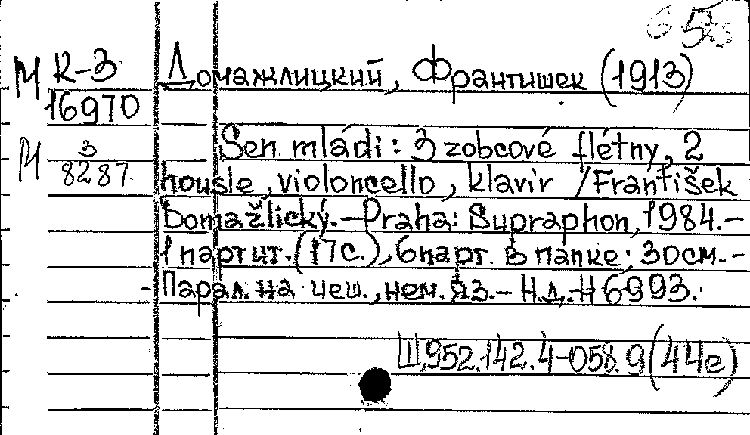 М К-3 Домажлицкий, Франтишек (1913)
16970
М 3 Sen mládi: 3 zobcové flétny, 2
8287 housle, violoncello, klavír / František
Domažlický. – Praha: Supraphon, 1984. –
1 партит. (17 с.), 6 парт. в папке; 30 см. –
Парал. на чеш., нем. яз. – Н.д. H 6993.
Щ952.142.4-058.9(44е)